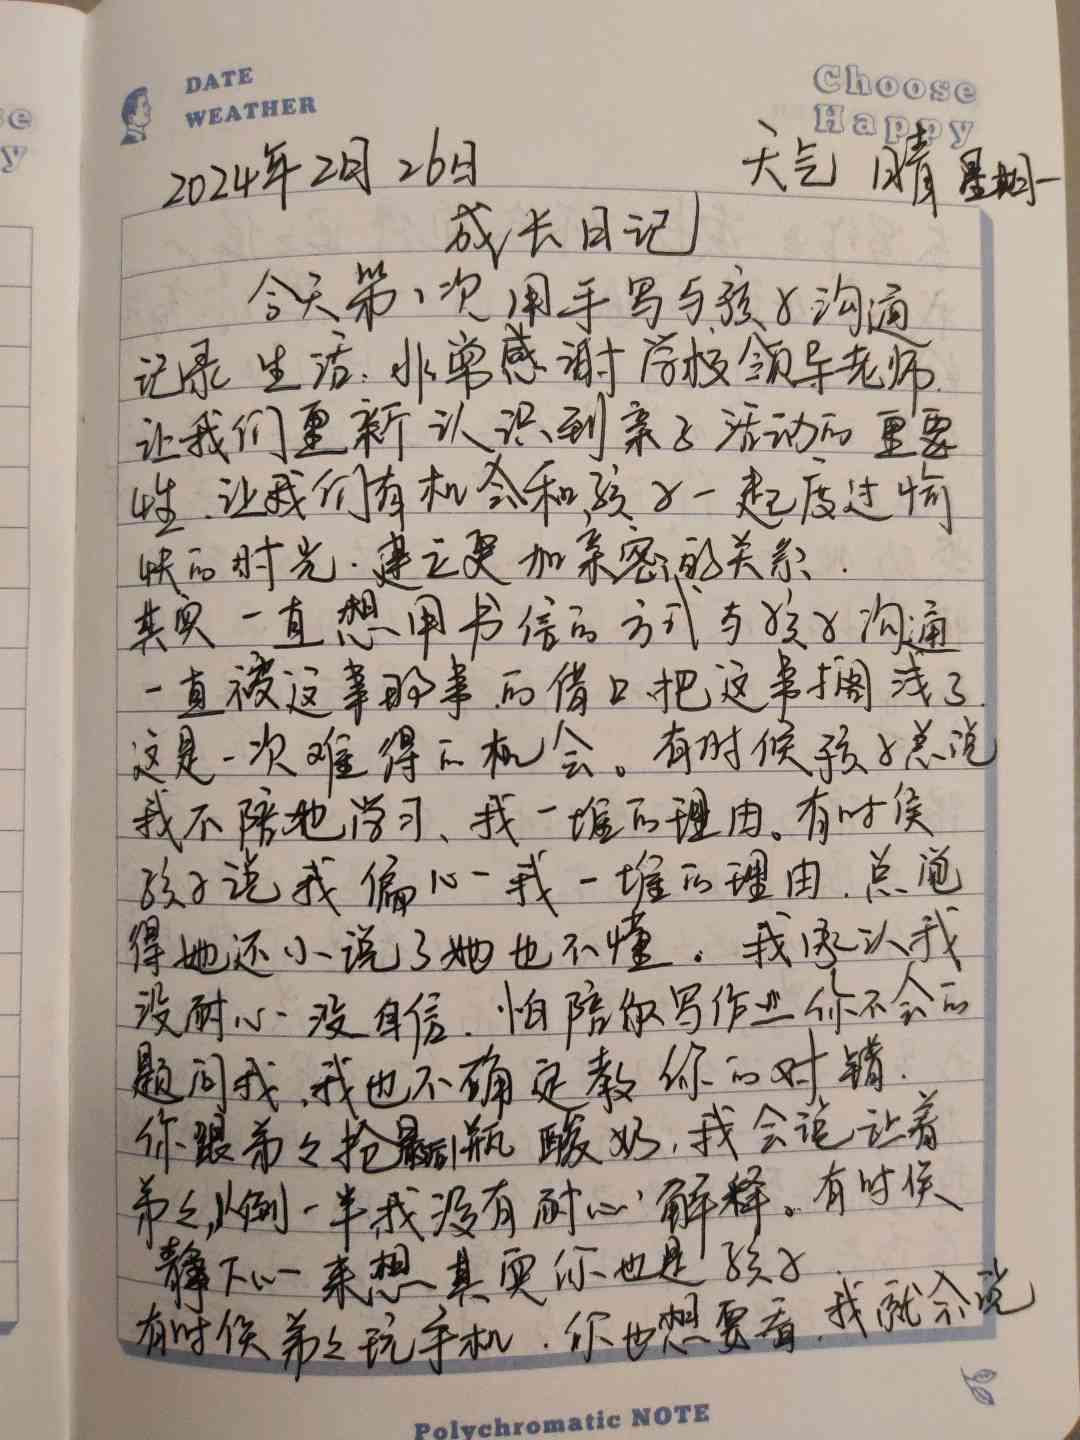 se
y
DATE
WEATHER
Choose
Happy
2024年2月26日 天气 晴 星期一
成长日记
今天第1次用手写与孩子沟通
记录生活.非常感谢学校领导老师.
让我们重新认识到亲子活动的重要
性.让我们有机会和孩子一起度过愉
快的时光.建立更加亲密的关系.
其实一直想用书信的方式与孩子沟通
一直被这事那事的借口把这事搁浅了.
这是一次难得的机会。有时候孩子总说
我不陪她学习、我一堆的理由。有时侯
孩子说我偏心我一堆的理由.总觉
得她还小说了她也不懂.我承认我
没耐心没自信.怕陪你写作业你不会的
题问我.我也不确定教你的对错.
你跟弟弟抢最后1瓶酸奶,我会说让着
弟弟,倒一半,我没有耐心解释。有时侯
静下心来想其实你也是孩子.
有时侯弟弟玩手机.你也想要看.我就会说
Polychromatic NOTE